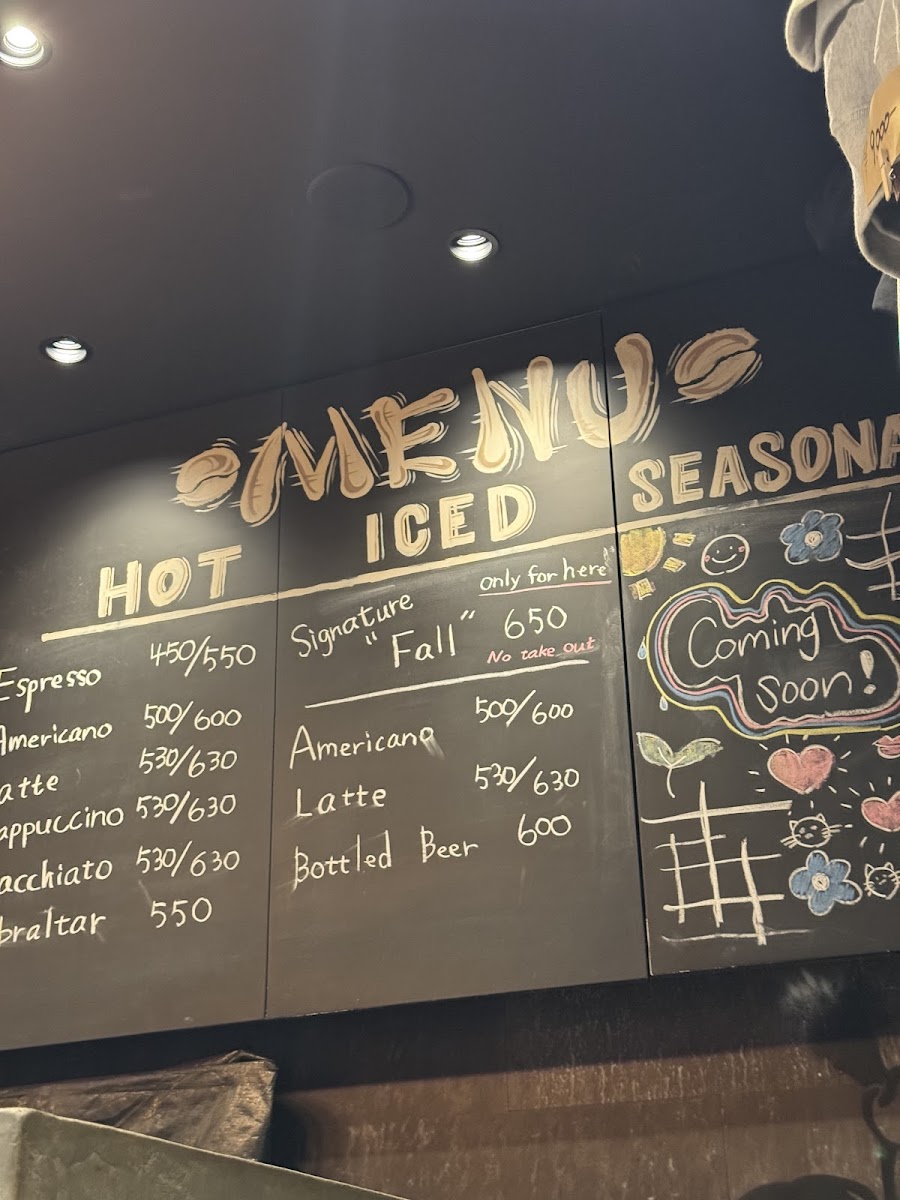 MENU
HOT
Espresso 450/550
Americano 500/600
atte 530/630
appuccino 530/630
acchiato 530/630
braltar 550
ICED
only for here
Signature
"Fall" 650
No take out
Americano 500/600
Latte 530/630
Bottled Beer 600
SEASONA
Coming
soon!
9,000-